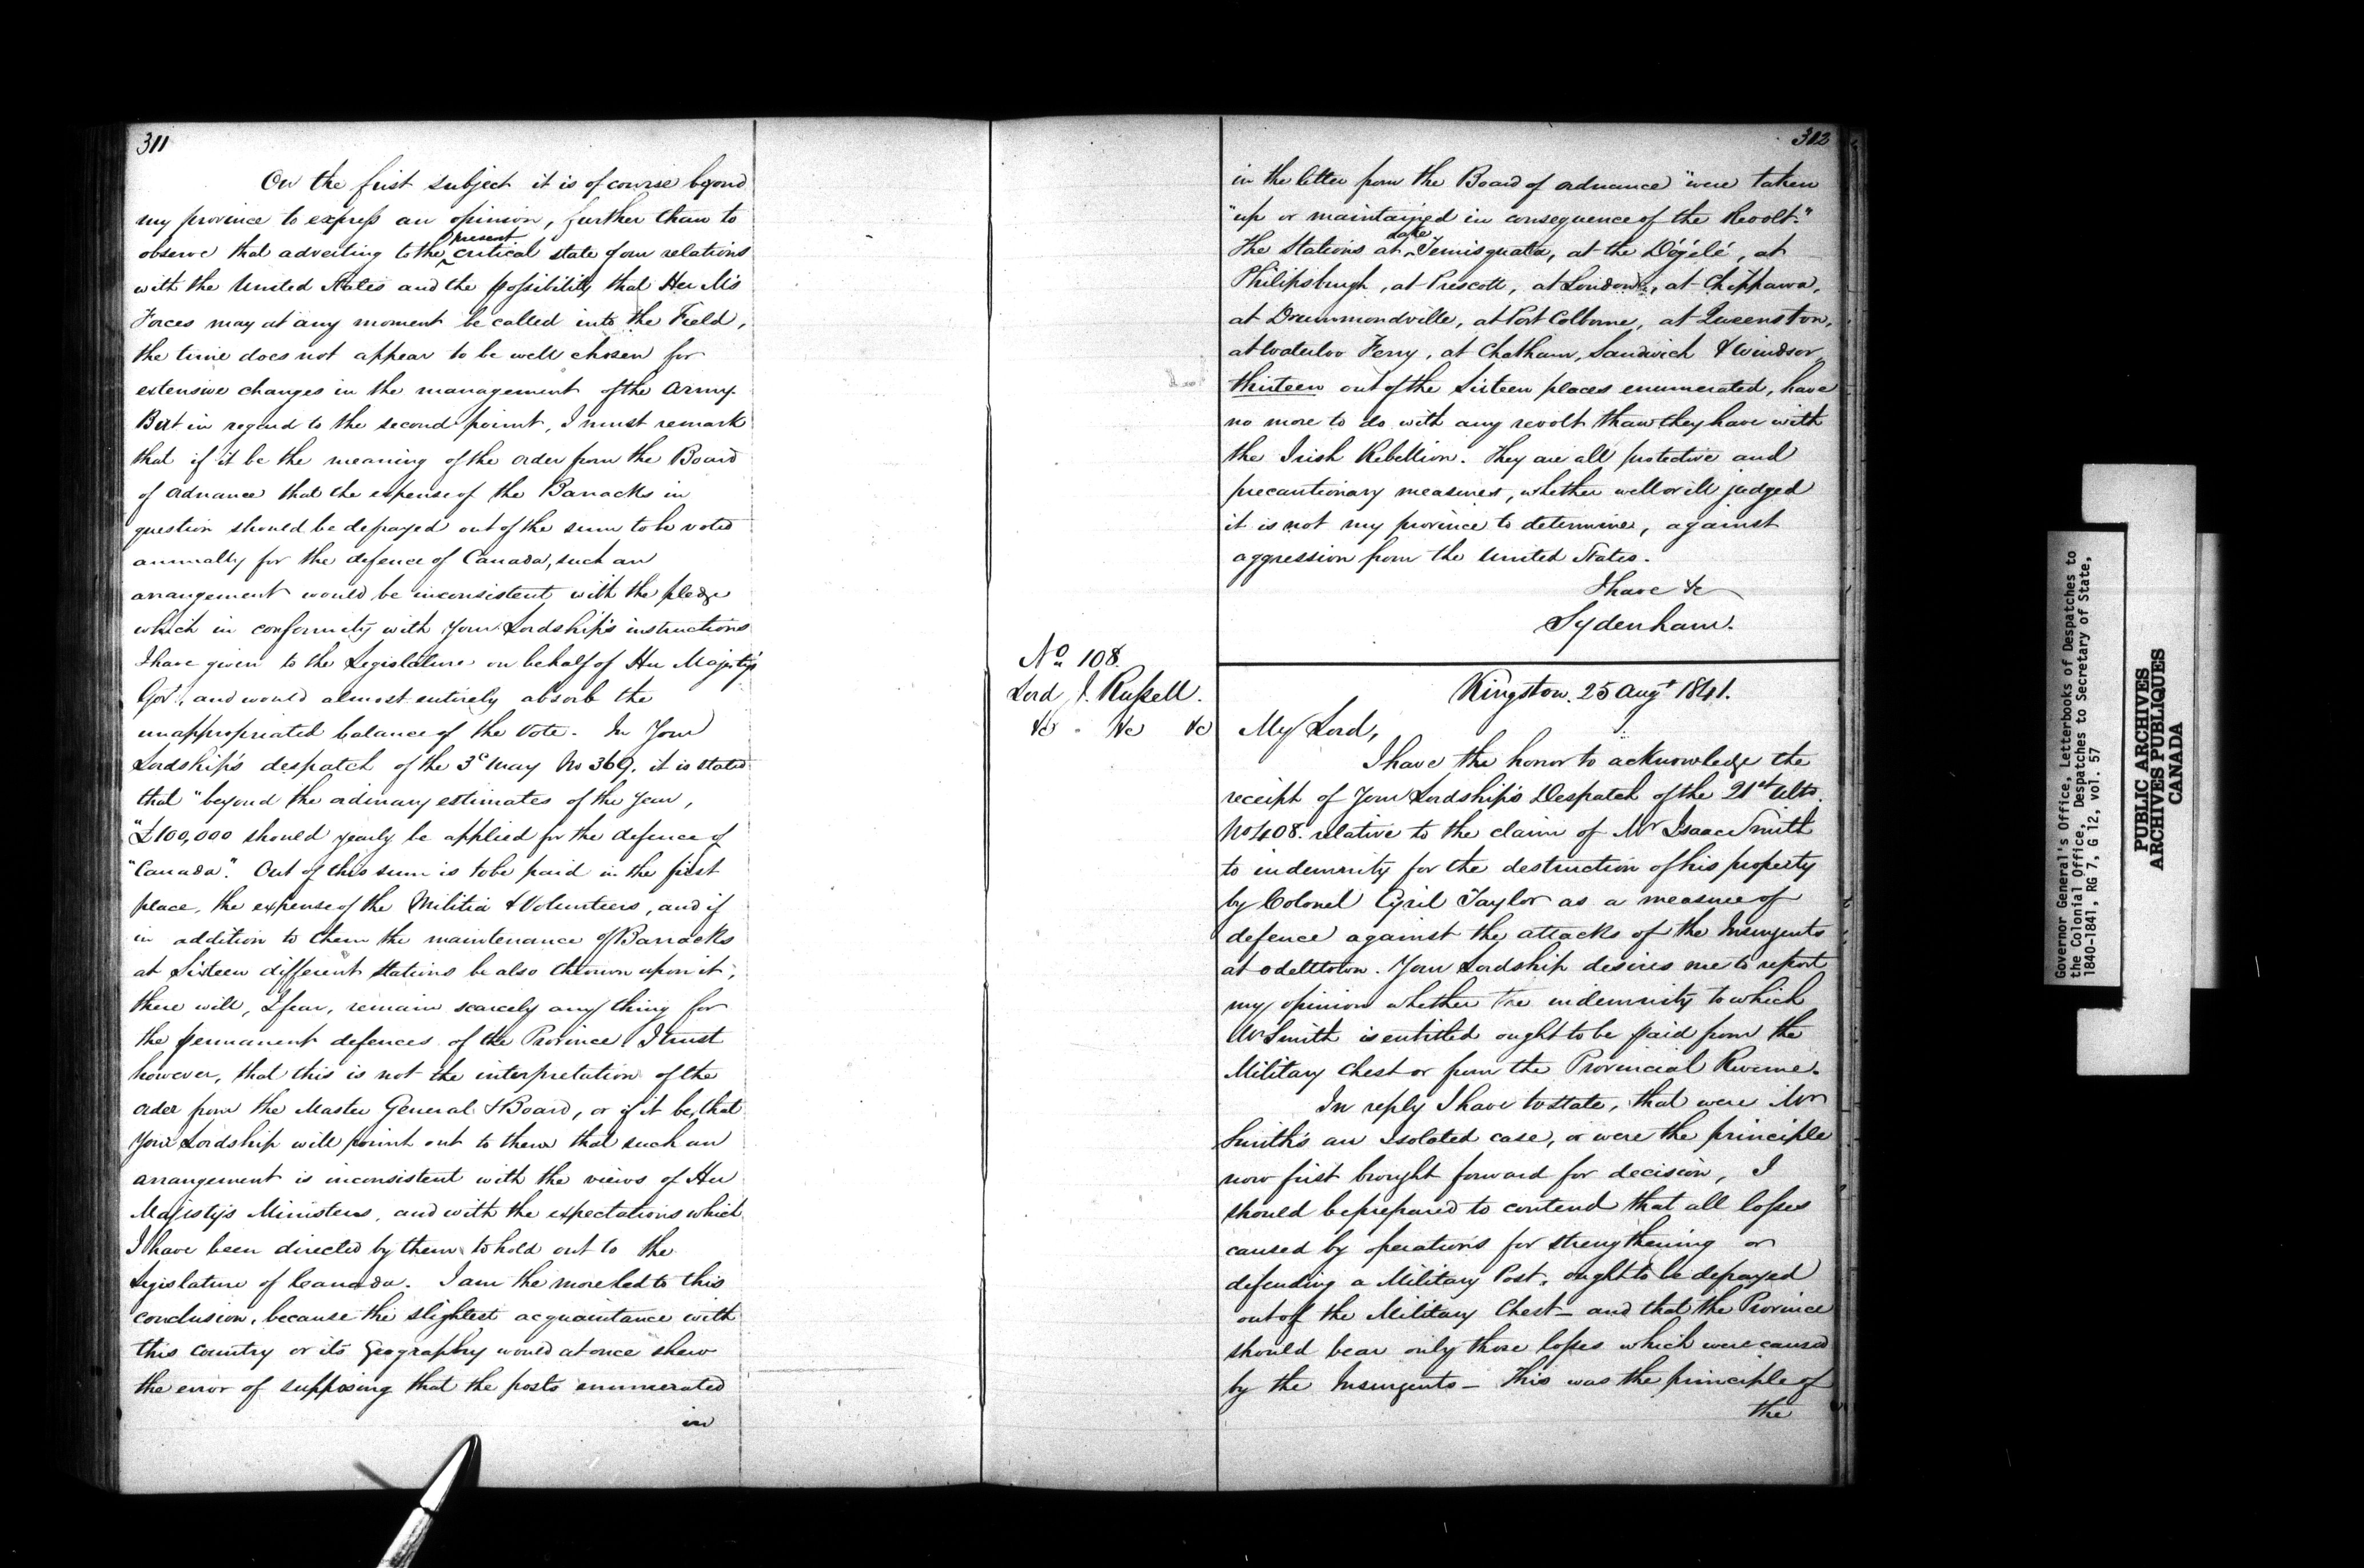 311
On the first subject it is of course beyond
my province to express an opinion, further than to
observe that adverting to the present critical state of our relations
with the United States and the possibility that Her M's
Forces may at any moment be called into the Field,
the time does not appear to be well chosen for
extensive changes in the management of the Army.
But in regard to the second point, I must remark
that if it be the meaning of the order from the Board
of Ordnance that the expense of the Barracks in
question should be defrayed out of the sum to be voted
annually for the defence of Canada, such an
arrangement would be inconsistent with the pledge
which in conformity with Your Lordship's instructions
I have given to the Legislature on behalf of Her Majesty's
Govt, and would almost entirely absorb the
unappropriated balance of the Vote. In Your
Lordship's despatch of the 3d May No 369, it is stated
that "beyond the ordinary estimates of the Year,
"£100,000 should yearly be applied for the defence of
"Canada". Out of this sum is to be paid in the first
place, the expense of the Militia & Volunteers, and if
in addition to them the maintenance of Barracks
at Sixteen different Stations be also thrown upon it,
there will, I fear, remain scarcely any thing for
the permanent defences of the Province. I trust
however, that this is not the interpretation of the
order from the Master General & Board, or if it be, that
Your Lordship will point out to them that such an
arrangement is inconsistent with the views of Her
Majesty's Ministers, and with the expectations which
I have been directed by them to hold out to the
Legislature of Canada. I am the more led to this
conclusion, because the slightest acquaintance with
this Country or its Geography would at once shew
the error of supposing that the posts enumerated
in
312
in the letter from the Board of Ordnance "were taken
"up or maintained in consequence of the Revolt."
The Stations at Lake Temisquata, at the Dégélé, at
Philipsburgh, at Prescott, at London, at Chippawa,
at Drummondville, at Port Colborne, at Queenston,
at Waterloo Ferry, at Chatham, Sandwich & Windsor
thirteen out of the Sixteen places enumerated, have
no more to do with any revolt than they have with
the Irish Rebellion. They are all protective and
precautionary measures, whether well or ill judged
it is not my province to determine, against
aggression from the United States.
I have &c
Sydenham.
No 108.
Lord J. Russell.
&c &c &c
Kingston. 25 Augt 1841.
My Lord,
I have the honor to acknowledge the
receipt of Your Lordship's Despatch of the 21st Ulto
No 408. relative to the claim of Mr Isaac Smith
to indemnity for the destruction of his property
by Colonel Cyril Taylor as a measure of
defence against the attacks of the Insurgents
at Odelltown. Your Lordship desires me to report
my opinion whether the indemnity to which
Mr Smith is entitled ought to be paid from the
Military Chest or from the Provincial Revenue.
In reply I have to state, that were Mr
Smith's an isolated case, or were the principle
now first brought forward for decision, I
should be prepared to contend that all losses
caused by operations for strengthening or
defending a Military Post, ought to be defrayed
out of the Military Chest — and that the Province
should bear only those losses which were caused
by the Insurgents — This was the principle of
the
Governor General's Office, Letterbooks of Despatches to
the Colonial Office, Despatches to Secretary of State,
1840-1841, RG 7, G 12, vol. 57
PUBLIC ARCHIVES
ARCHIVES PUBLIQUES
CANADA